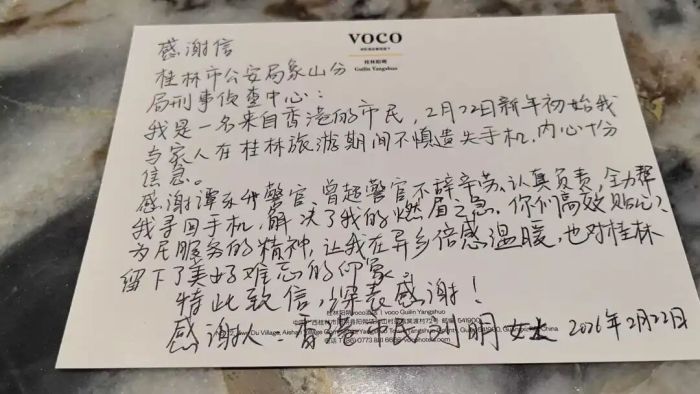 VOCO
桂林阳朔
Guilin Yangshuo
感谢信
桂林市公安局象山分
局刑事侦查中心:
我是一名来自香港的市民,2月22日新年初始我
与家人在桂林旅游期间不慎遗失手机,内心十分
信急。
感谢谭永升警官、曾超警官不辞辛劳、认真负责,全力帮
我寻回手机,解决了我的燃眉之急。你们高效贴心、
为民服务的精神,让我在异乡倍感温暖,也对桂林
留下了美好难忘的印象
特此致信,深表感谢!
桂林阳朔voco酒店 | voco Guilin Yangshuo
感谢人:香 明 女士 2026年2月22日